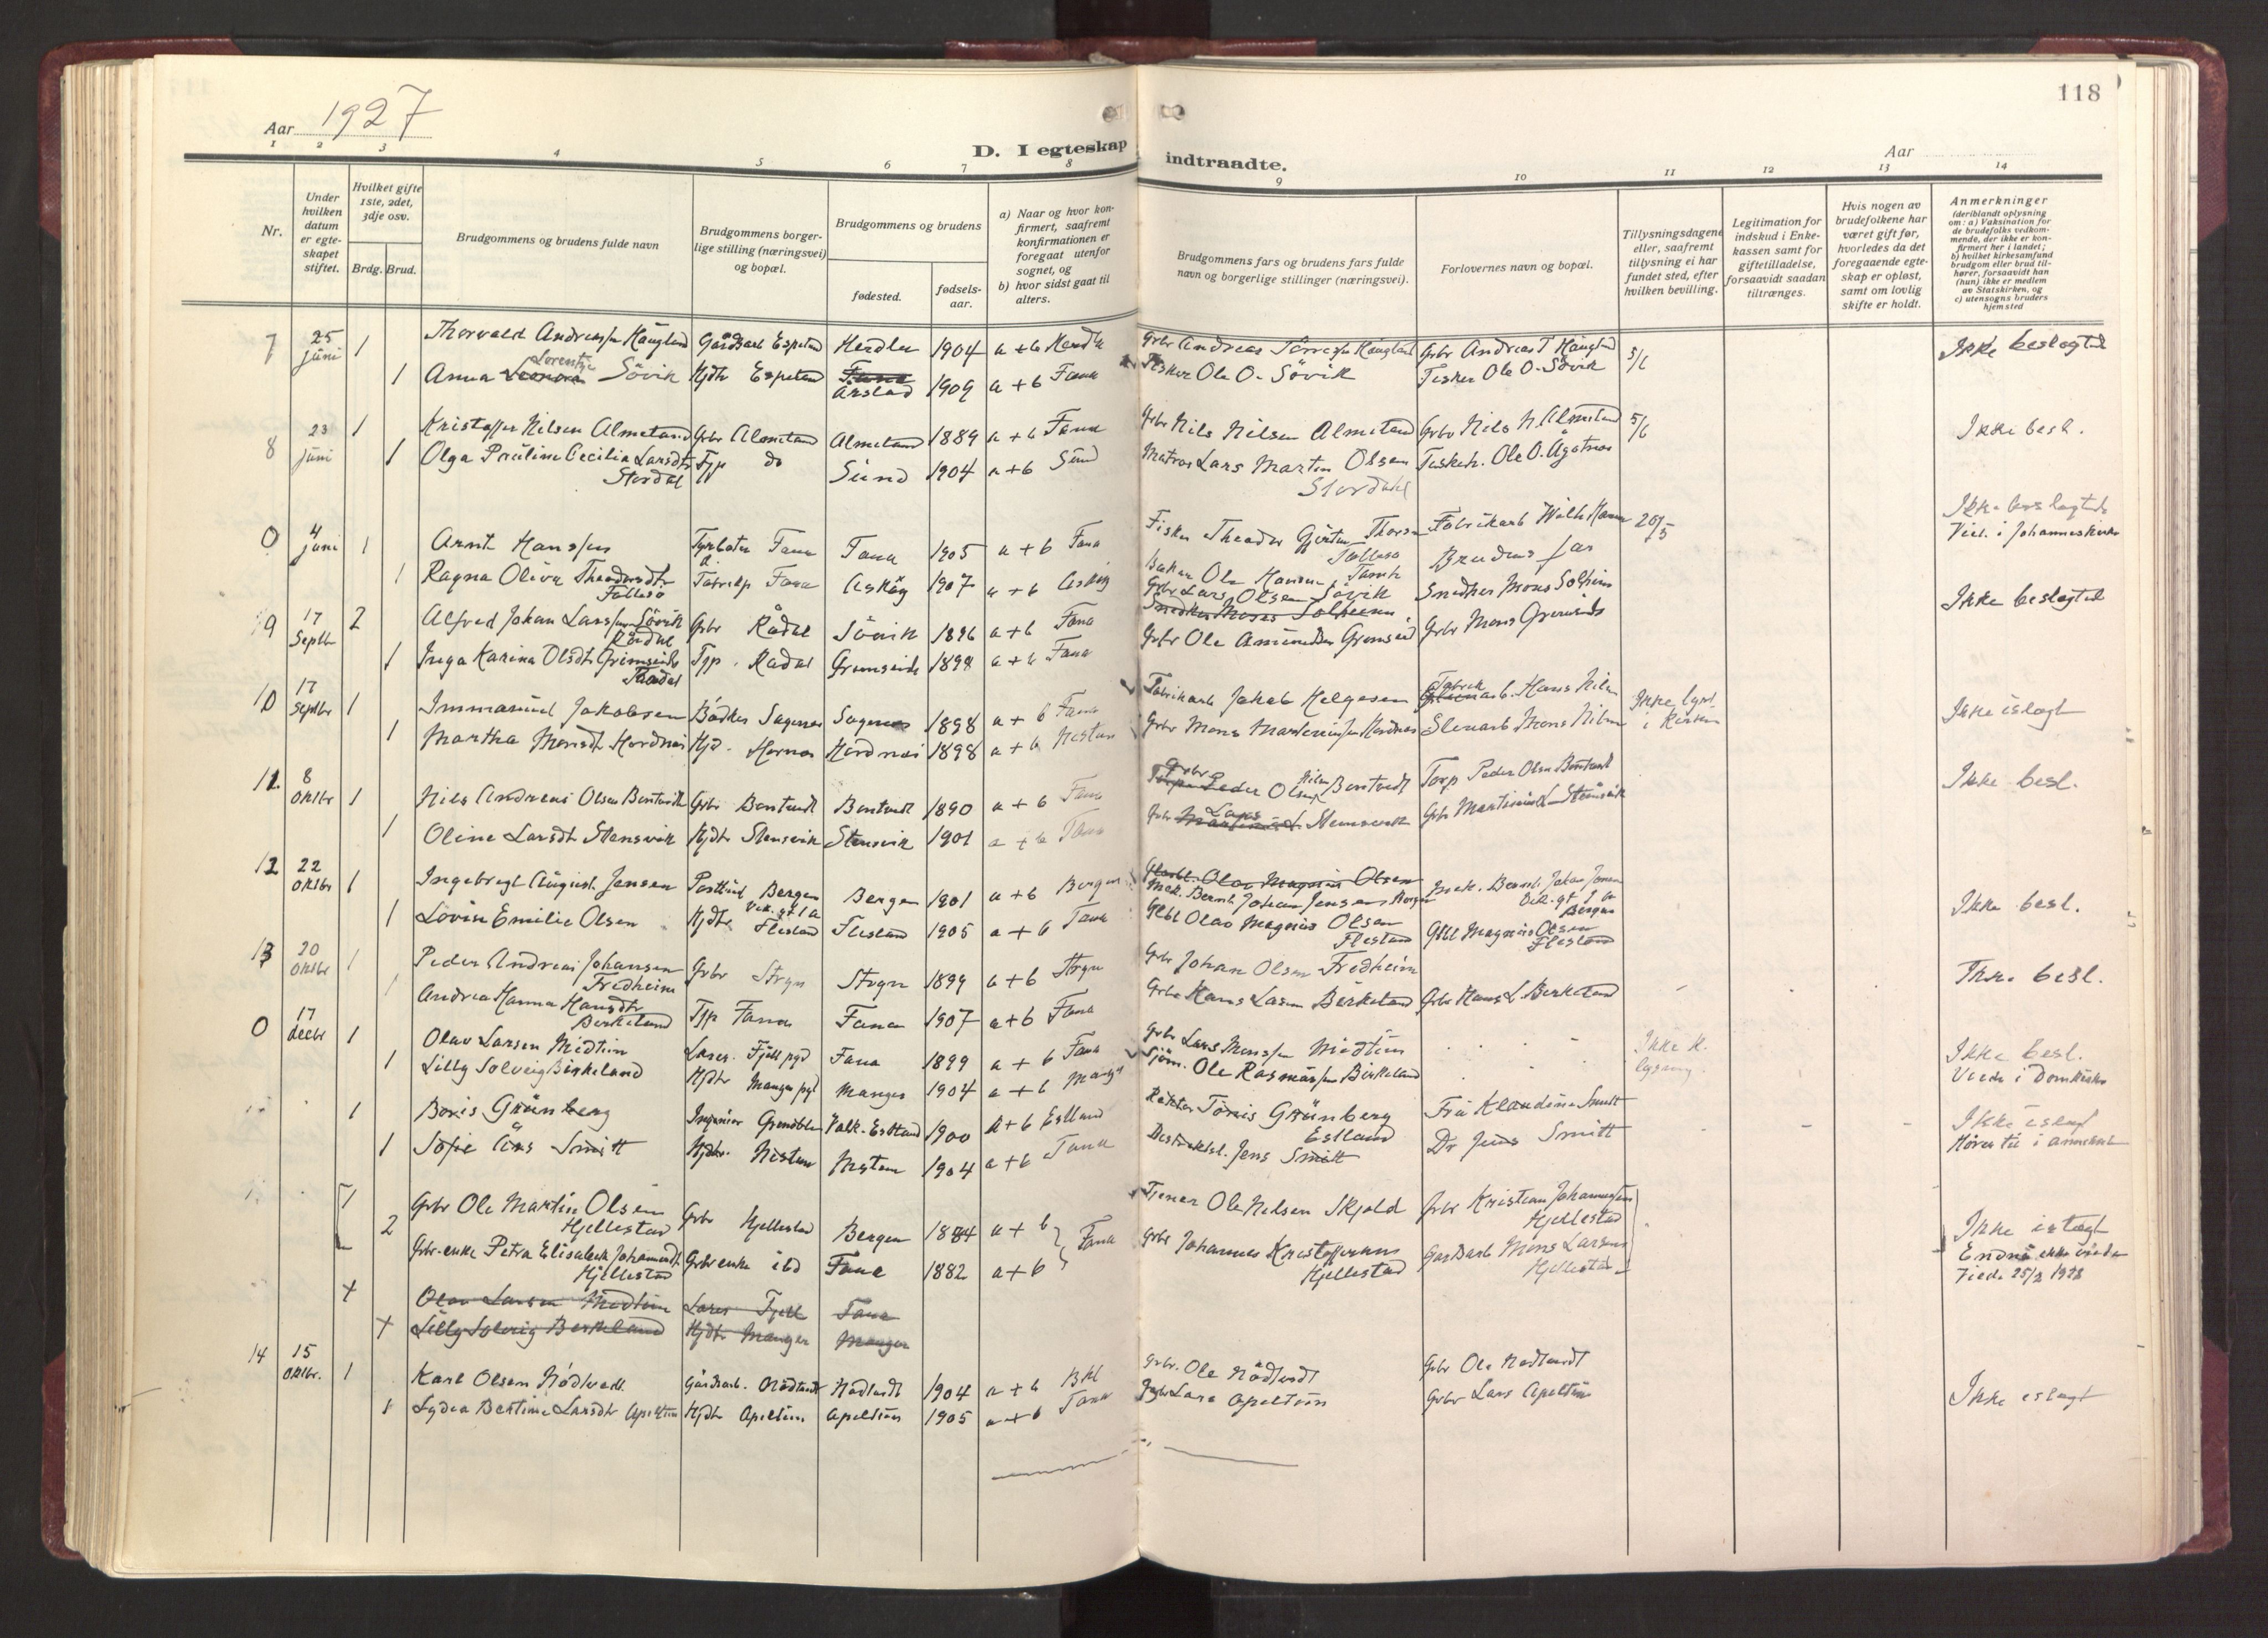 Aar 1927
D. I egteskap
indtraadte.
Aar
118
1 2 3 4 5 6 7 8 9 10 11 12 13 14
Nr.
Under hvilken datum er egteskapet stiftet.
Hvilket gifte 1ste, 2det, 3dje osv.
Brdg. Brud.
Brudgommens og brudens fulde navn
Brudgommens borgerlige stilling (næringsvei) og bopæl.
Brudgommens og brudens
fødested.
fødselsaar.
a) Naar og hvor konfirmert, saafremt konfirmationen er foregaat utenfor sognet, og
b) hvor sidst gaat til alters.
Brudgommens fars og brudens fars fulde navn og borgerlige stillinger (næringsvei).
Forlovernes navn og bopæl.
Tillysningsdagene eller, saafremt tillysning ei har fundet sted, efter hvilken bevilling.
Legitimation for indskud i Enkekassen samt for giftetilladelse, forsaavidt saadan tiltrænges.
Hvis nogen av brudefolkene har været gift før, hvorledes da det foregaaende egteskap er opløst, samt om lovlig skifte er holdt.
Anmerkninger
(deriblandt oplysning om: a) Vaksination for de brudefolks vedkommende, der ikke er konfirmert her i landet; b) hvilket kirkesamfund brudgom eller brud tilhører, forsaavidt han (hun) ikke er medlem av Statskirken, og c) utensogns bruders hjemsted
7 25 juni 1 Thorvald Andreassen Haugland Gårdsarb Espeland Herdla 1904 a + b Herdla Grbr Andreas Haugland Grbr Andreas T Haugland 5/6 Ikke beslegtet
1 Anna Leonora Lorentze Sövik Hjdtr Espeland Fana Arstad 1909 a + b Fana Fisker Ole O. Sövik Fisker Ole O. Sövik
8 23 juni 1 Kristoffer Nilsen Almeland Grbr Almeland Almeland 1889 a + b Fana Grbr Nils Nilsen Almeland Grbr Nils N. Almeland 5/6 Ikke besl.
1 Olga Pauline Cecilia Larsdtr Stordal Tjp do Sund 1904 a + b Sund Matros Lars Martin Olsen Stordahl Ole O. Ågotnes
0 4 juni 1 Arnt Hanssen Fana Fana 1905 a + b Fana Fisker Theodor Thorsen Fabrikarb 20/5 Ikke beslegtet
Viet. i Johanneskirke
1 Ragna Oliva Theodorsdtr Follesø Fabrikp Fana Askög 1907 a + b Askög Baker Ole Hansen Brudens far
9 17 Septbr 2 Alfred Johan Larssen Sövik Rådal Grbr Rådal Sövik 1896 a + b Fana Grbr Lars Olsen Sövik Snedker Mons Solheim Snedker Mons Solheim Ikke beslegtet
1 Inga Karina Olsdtr Grimseide Raadal Tjp. Rådal Grimseide 1898 a + b Fana Grbr Ole Amundsen Grimseid Grbr Mons Grimseide
10 17 Septbr 1 Immanuel Jakobsen Bödker Sagenes Sagenes 1898 a + b Fana Fabrikarb Jakob Helgesen Fabrikarb. Hans Nilsen Ikke lyst i kirken Ikke islegt
1 Martha Monsdtr Hordnes Hjd. Hornes Hordnes 1898 a + b Nestun Grbr Mons Hordnes Stenarb Mons Nilsen
11. 8 Oktbr 1 Nils Andreas Olsen Bontveit Grbr Bontvedt Bontvedt 1890 a + b Fana Grbr Peder Olsen Nilsen Bontvedt Peder Olsen Bontvedt Ikke besl.
1 Oline Larsdtr Stensvik Hjdtr Stensvik Stensvik 1901 a + b Fana Grbr Martinus L. Lars Stennsvik Grbr Martinus L. Stensvik
12 22 Oktbr 1 Ingebregt August Jensen Bergen Bergen 1901 a + b Bergen Olav Magnus Olsen Mek. Bernh Johan Jensen Bergen Mek. Bernh Johan Jensen Bergen Ikke besl.
1 Lovise Emilie Olsen Hjdtr Flesland Flesland 1905 a + b Fana Olav Magnus Olsen Flesland Magnus Olsen Flesland
13 20 Oktbr 1 Peder Andreas Johansen Fredheim Grbr Stryn Stryn 1899 a + b Stryn Grbr Johan Olsen Fredheim Ikke besl.
1 Andrea Hanna Hansdtr Birkeland Tjp Fana Fana 1907 a + b Fana Grbr Hans Lasen Birkeland Grbr Hans L. Birkeland
0 17 decbr 1 Olav Larsen Midtun Lærer. Fjell pgd Fana 1899 a + b Fana Grbr Lars Monssen Midtun Ikke k. lysning Ikke besl.
Viede i Domkirken
1 Lilly Solveig Birkeland Hjdtr Manger pgd Manger 1904 a + b Manger Sjöm. Ole Rasmussen Birkeland
1 Boris Grünberg Ingeniör Grenoble Valk. Estland 1900 a + b Estland Rektor Tönis Grünberg Estland Fru Klaudine Smitt Ikke islegt
1 Sofie Smitt Hjdtr. Nestun Nestun 1904 a + b Fana Distriktsl. Jens Smitt Dr Jens Smitt
1 Grbr Ole Martin Olsen Hjellestad Grbr Hjellestad Bergen 1884 a + b Fana Tjener Ole Nilsen Skjold Grbr Kristian Johannessen Hjellestad Ikke islegt
Endnu ikke viede
Viede 25/2 1928
2 Grbr-enke Petra Elisabeth Johannesdtr Hjellestad Grbrenke ibd Fana 1882 a + b Grbr Johannes Kristoffersen Hjellestad Gardsarb Mons Larsen Hjellestad
+ Olav Larsen Midtun Lærer Fjell Fana
+ Lilly Solveig Birkeland Hjdtr Manger Manger
14 15 Oktbr. 1 Karl Olsen Nödtvedt Gårdsarb. Nödtvedt Nödtvedt 1904 a + b Bkl Grbr. Ole Nödtvedt Grbr Ole Nödtvedt Ikke islegt
1 Lydia Bertine Larsdtr Apeltun Hjdtr Apeltun Apeltun 1905 a + b Fana Grbr Lars Apeltun Grbr Lars Apeltun